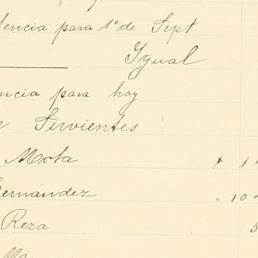 dencia para 1º de Sept
Igual
encia para hoy
Sirvientes
Mota 1
Fernández 10
Reza